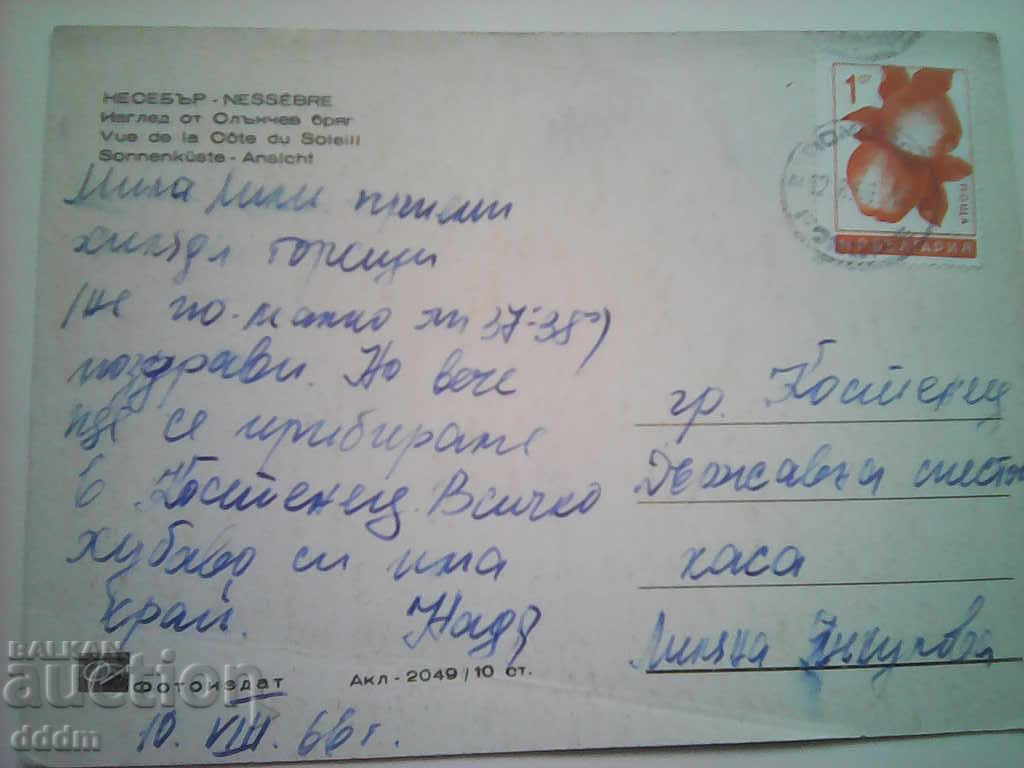 НЕСЕБЪР - NESSÈBRE
Изглед от Слънчев бряг
Vue de la Côte du Soleill
Sonnenküste - Ansicht
1 ст
НР БЪЛГАРИЯ
Мила Мими приеми
хиляди горещи
(не по-малко от 37-38°)
поздрави. Но вече
ще се прибираме
в Костенец. Всичко
хубаво си има
край. Надя
гр. Костенец
Държавна спест.
каса
Миляна
Фотоиздат
Акл - 2049/10 ст.
10. VIII. 66 г.
BALKAN
auction
dddm